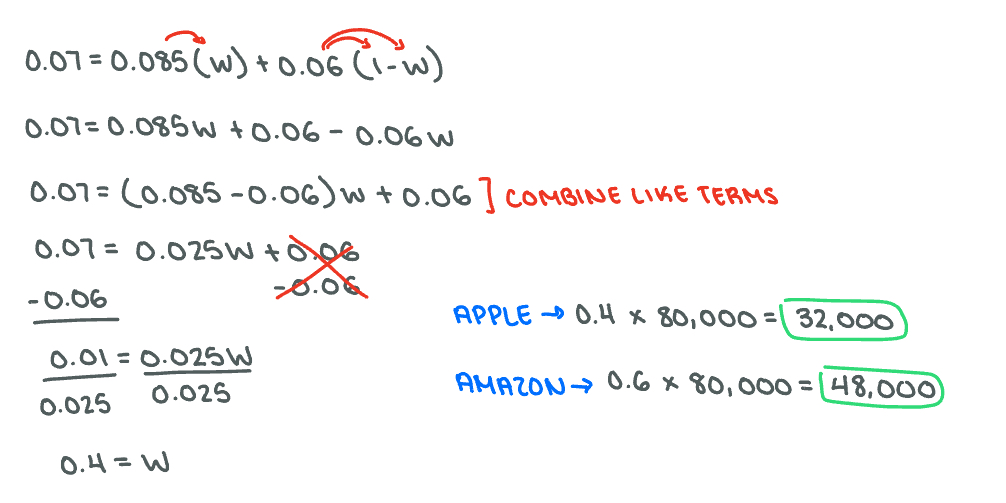 0.07 = 0.085(W) + 0.06(1-W)
0.07 = 0.085W + 0.06 - 0.06W
0.07 = (0.085 - 0.06)W + 0.06 ] COMBINE LIKE TERMS
0.07 = 0.025W + 0.06
-0.06 -0.06
0.01 = 0.025W
0.025 0.025
0.4 = W
APPLE → 0.4 × 80,000 = 32,000
AMAZON → 0.6 × 80,000 = 48,000